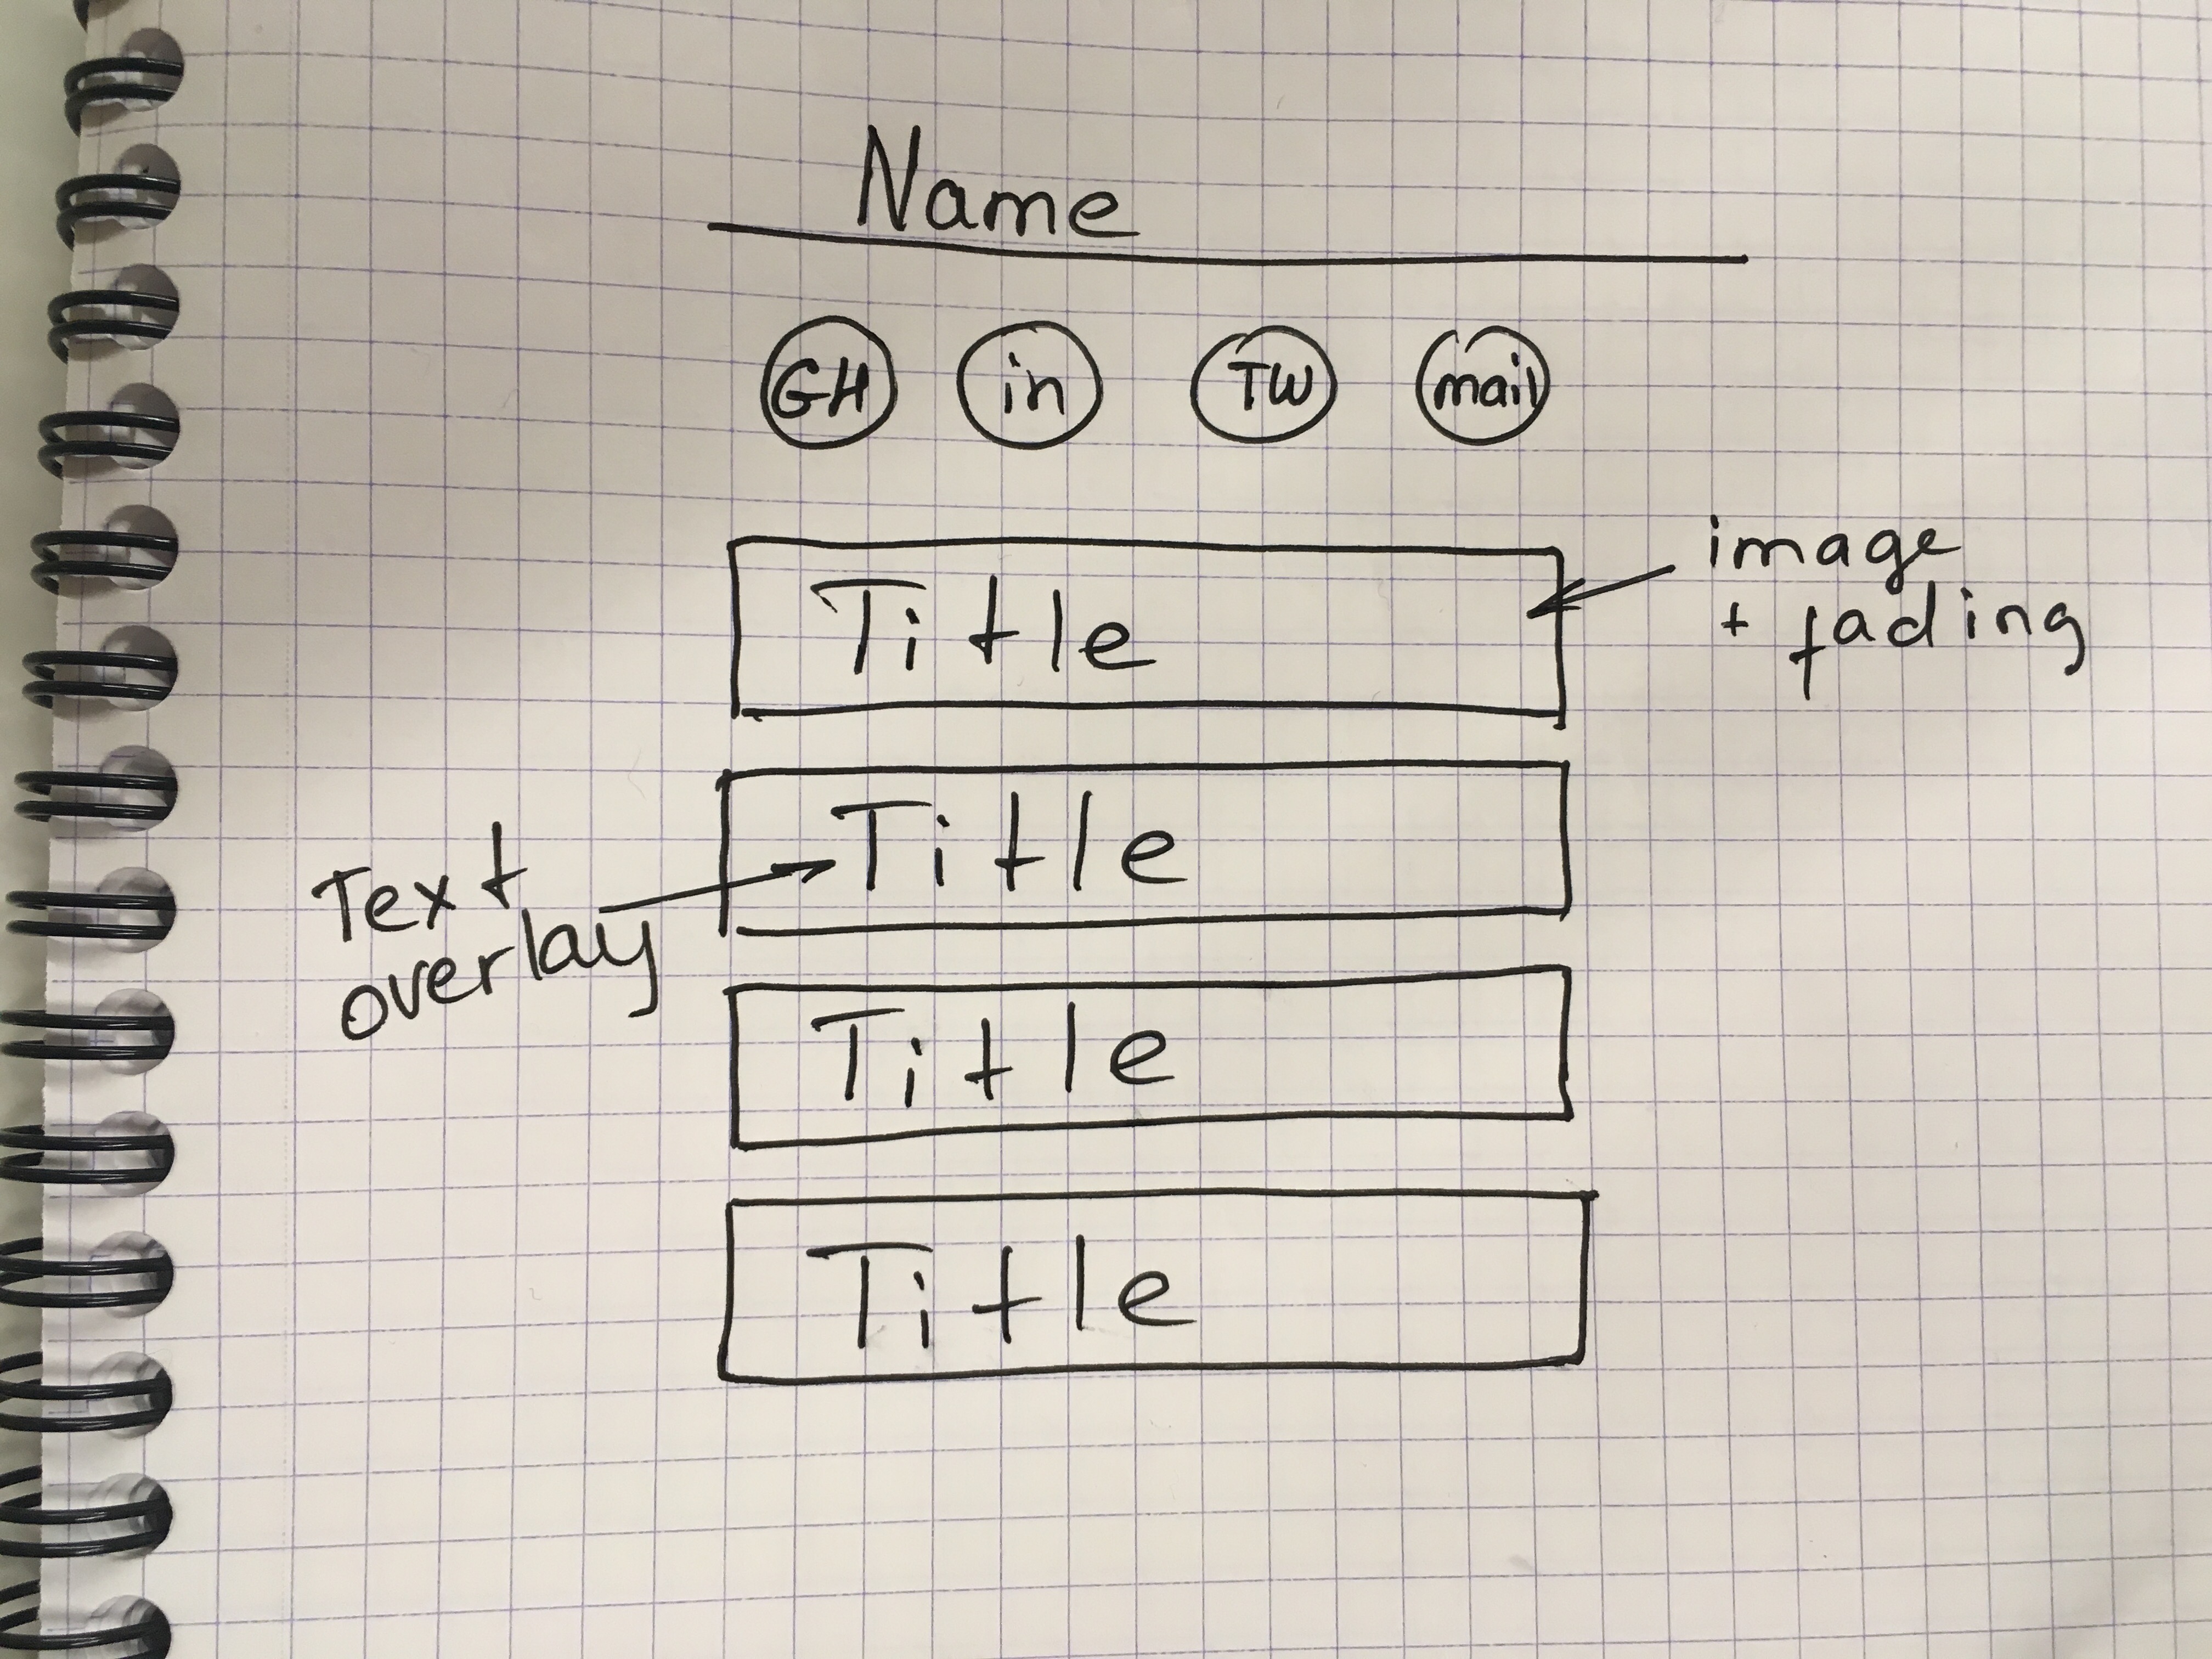 Name
GH in TW mail
image
+ fading
Title
Title
Text
overlay
Title
Title